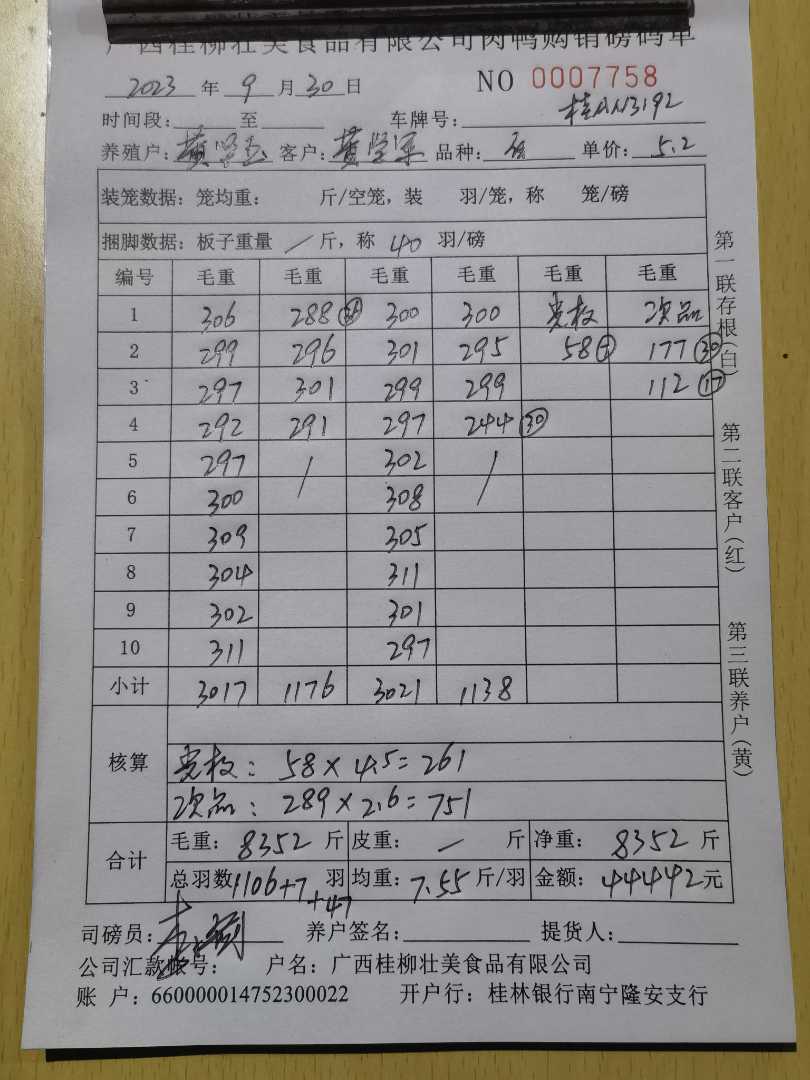 广西桂柳壮美食品有限公司肉鸭购销磅码单
2023 年 9 月 30 日 NO 0007758
时间段: 至 车牌号: 桂AN3192
养殖户: 黄 客户: 黄 品种: 单价: 5.2
装笼数据: 笼均重: 斤/空笼, 装 羽/笼, 称 笼/磅
捆脚数据: 板子重量 / 斤, 称 40 羽/磅
编号 毛重 毛重 毛重 毛重 毛重 毛重
1 306 288 300 300 次品
2 299 296 301 295 58 7 177 30
3 297 301 299 299 112 17
4 292 291 297 244 30
5 297 / 302 /
6 300 308
7 309 305
8 304 311
9 302 301
10 311 297
小计 3017 1176 3021 1138
核算
: 58 × 4.5 = 261
次品: 289 × 2.6 = 751
合计
毛重: 8352 斤 皮重: — 斤 净重: 8352 斤
总羽数 1106+7+47 羽 均重: 7.55 斤/羽 金额: 44442 元
司磅员: 养户签名: 提货人:
公司汇款帐号: 户名: 广西桂柳壮美食品有限公司
账 户: 660000014752300022 开户行: 桂林银行南宁隆安支行
第一联存根(白)
第二联客户(红)
第三联养户(黄)